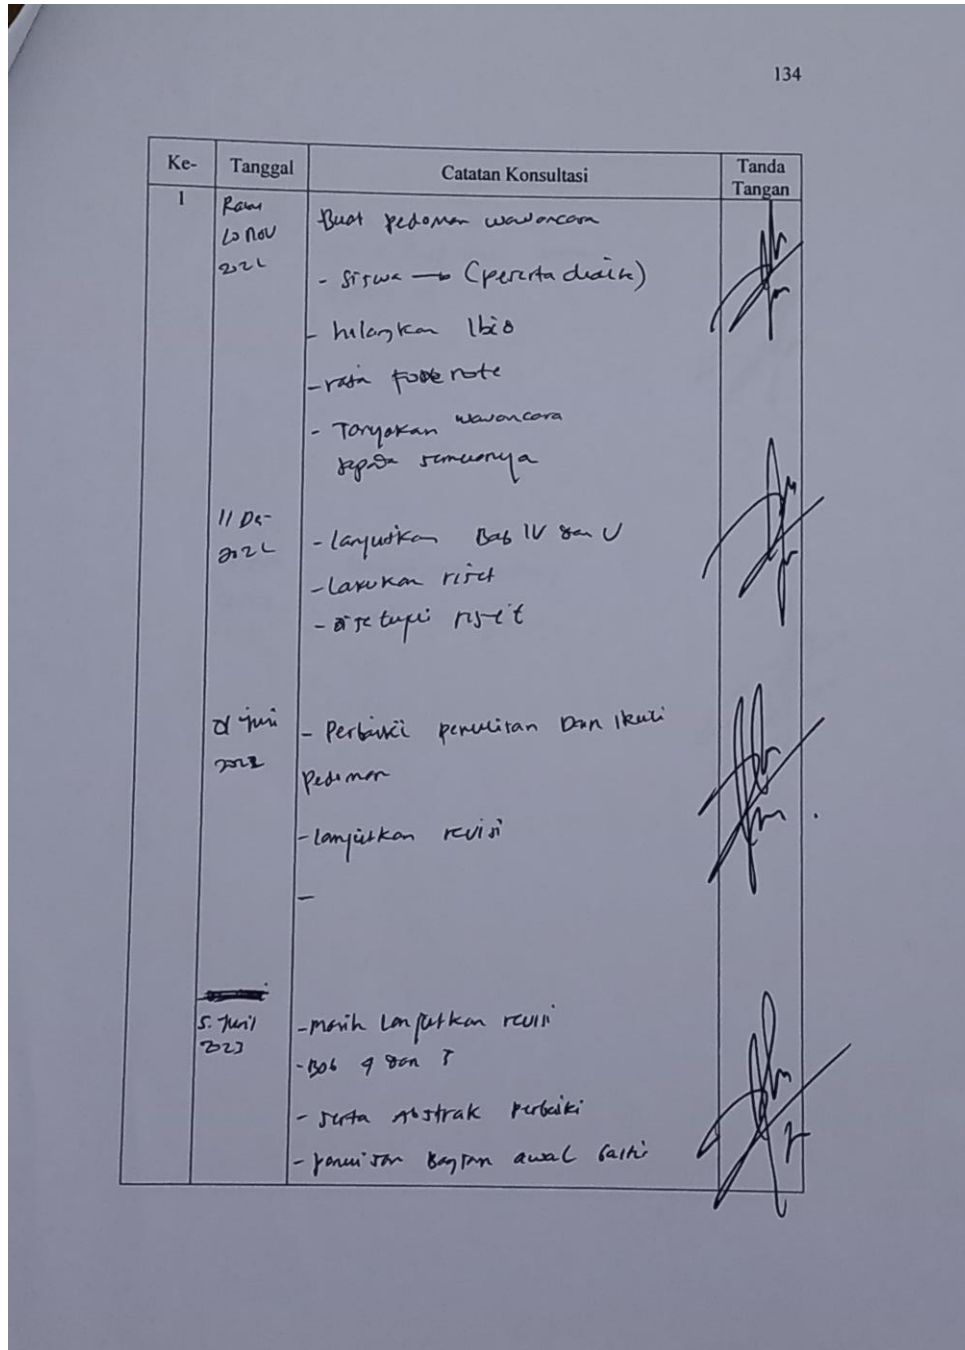 134
Ke-
Tanggal
Catatan Konsultasi
Tanda
Tangan
1
10 Nov
202
Buat pedoman wawancara
- Siswa → (peserta didik)
- hilangkan Ibid
- foot note
- Tanyakan wawancara
kepada semuanya
11 Des
202
- lanjutkan Bab IV dan V
- Lakukan riset
- disetujui riset
- Perbaiki penulisan Dan ikuti
Pedoman
- lanjutkan revisi
-
5. Juni
2023
- masih lanjutkan revisi
- Bab 4 dan 5
- serta Abstrak perbaiki
- penulisan Bagian awal